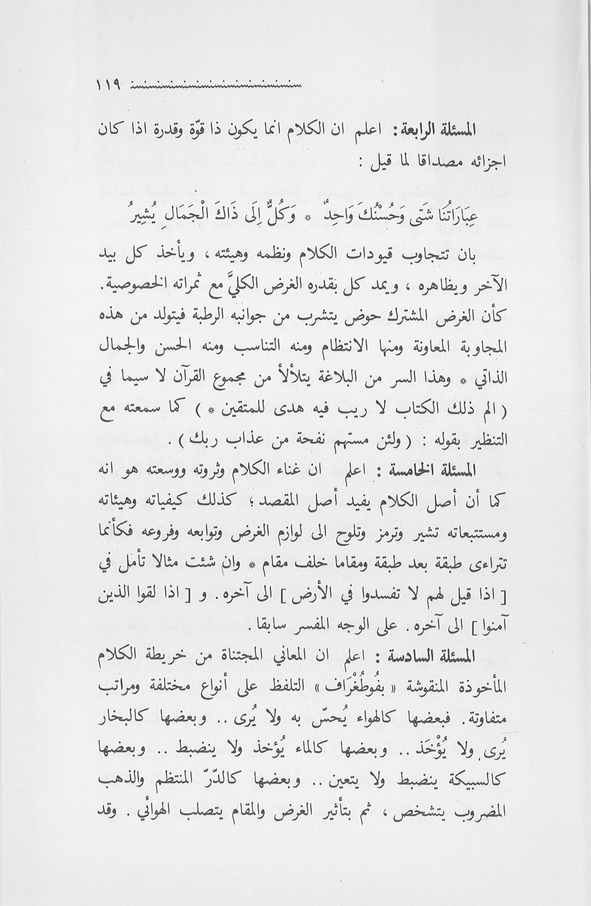 ١١٩
المسئلة الرابعة : اعلم ان الكلام انما يكون ذا قوّة وقدرة اذا كان
اجزائه مصداقا لما قيل :
عِبَارَاتُنَا شَتَى وَحُسْنُكَ وَاحِدٌ * وَكُلٌّ اِلَى ذَاكَ الْجَمَالِ يُشِيرُ
بان تتجاوب قيودات الكلام ونظمه وهيئته ، ويأخذ كل بيد
الآخر ويظاهره ، ويمد كل بقدره الغرض الكليَّ مع ثمراته الخصوصية .
كأن الغرض المشترك حوض يتشرب من جوانبه الرطبة فيتولد من هذه
المجاوبة المعاونة ومنها الانتظام ومنه التناسب ومنه الحسن والجمال
الذاتي * وهذا السر من البلاغة يتلألأ من مجموع القرآن لا سيما في
( الم ذلك الكتاب لا ريب فيه هدى للمتقين * ) كما سمعته مع
التنظير بقوله : ( ولئن مستهم نفحة من عذاب ربك ) .
المسئلة الخامسة : اعلم ان غناء الكلام وثروته ووسعته هو انه
كما أن أصل الكلام يفيد أصل المقصد ؛ كذلك كيفياته وهيئاته
ومستتبعاته تشير وترمز وتلوح الى لوازم الغرض وتوابعه وفروعه فكأنما
تتراءى طبقة بعد طبقة ومقاما خلف مقام * وان شئت مثالا تأمل في
[ اذا قيل لهم لا تفسدوا في الأرض ] الى آخره . و [ اذا لقوا الذين
آمنوا ] الى آخره . على الوجه المفسر سابقا .
المسئلة السادسة : اعلم ان المعاني المجتناة من خريطة الكلام
المأخوذة المنقوشة « بفُوطُغْرَاف » التلفظ على أنواع مختلفة ومراتب
متفاوتة . فبعضها كالهواء يُحسّ به ولا يُرى .. وبعضها كالبخار
يُرى ولا يُؤْخَذ .. وبعضها كالماء يُؤخذ ولا ينضبط .. وبعضها
كالسبيكة ينضبط ولا يتعين .. وبعضها كالدّرّ المنتظم والذهب
المضروب يتشخص ، ثم بتأثير الغرض والمقام يتصلب الهوائي . وقد